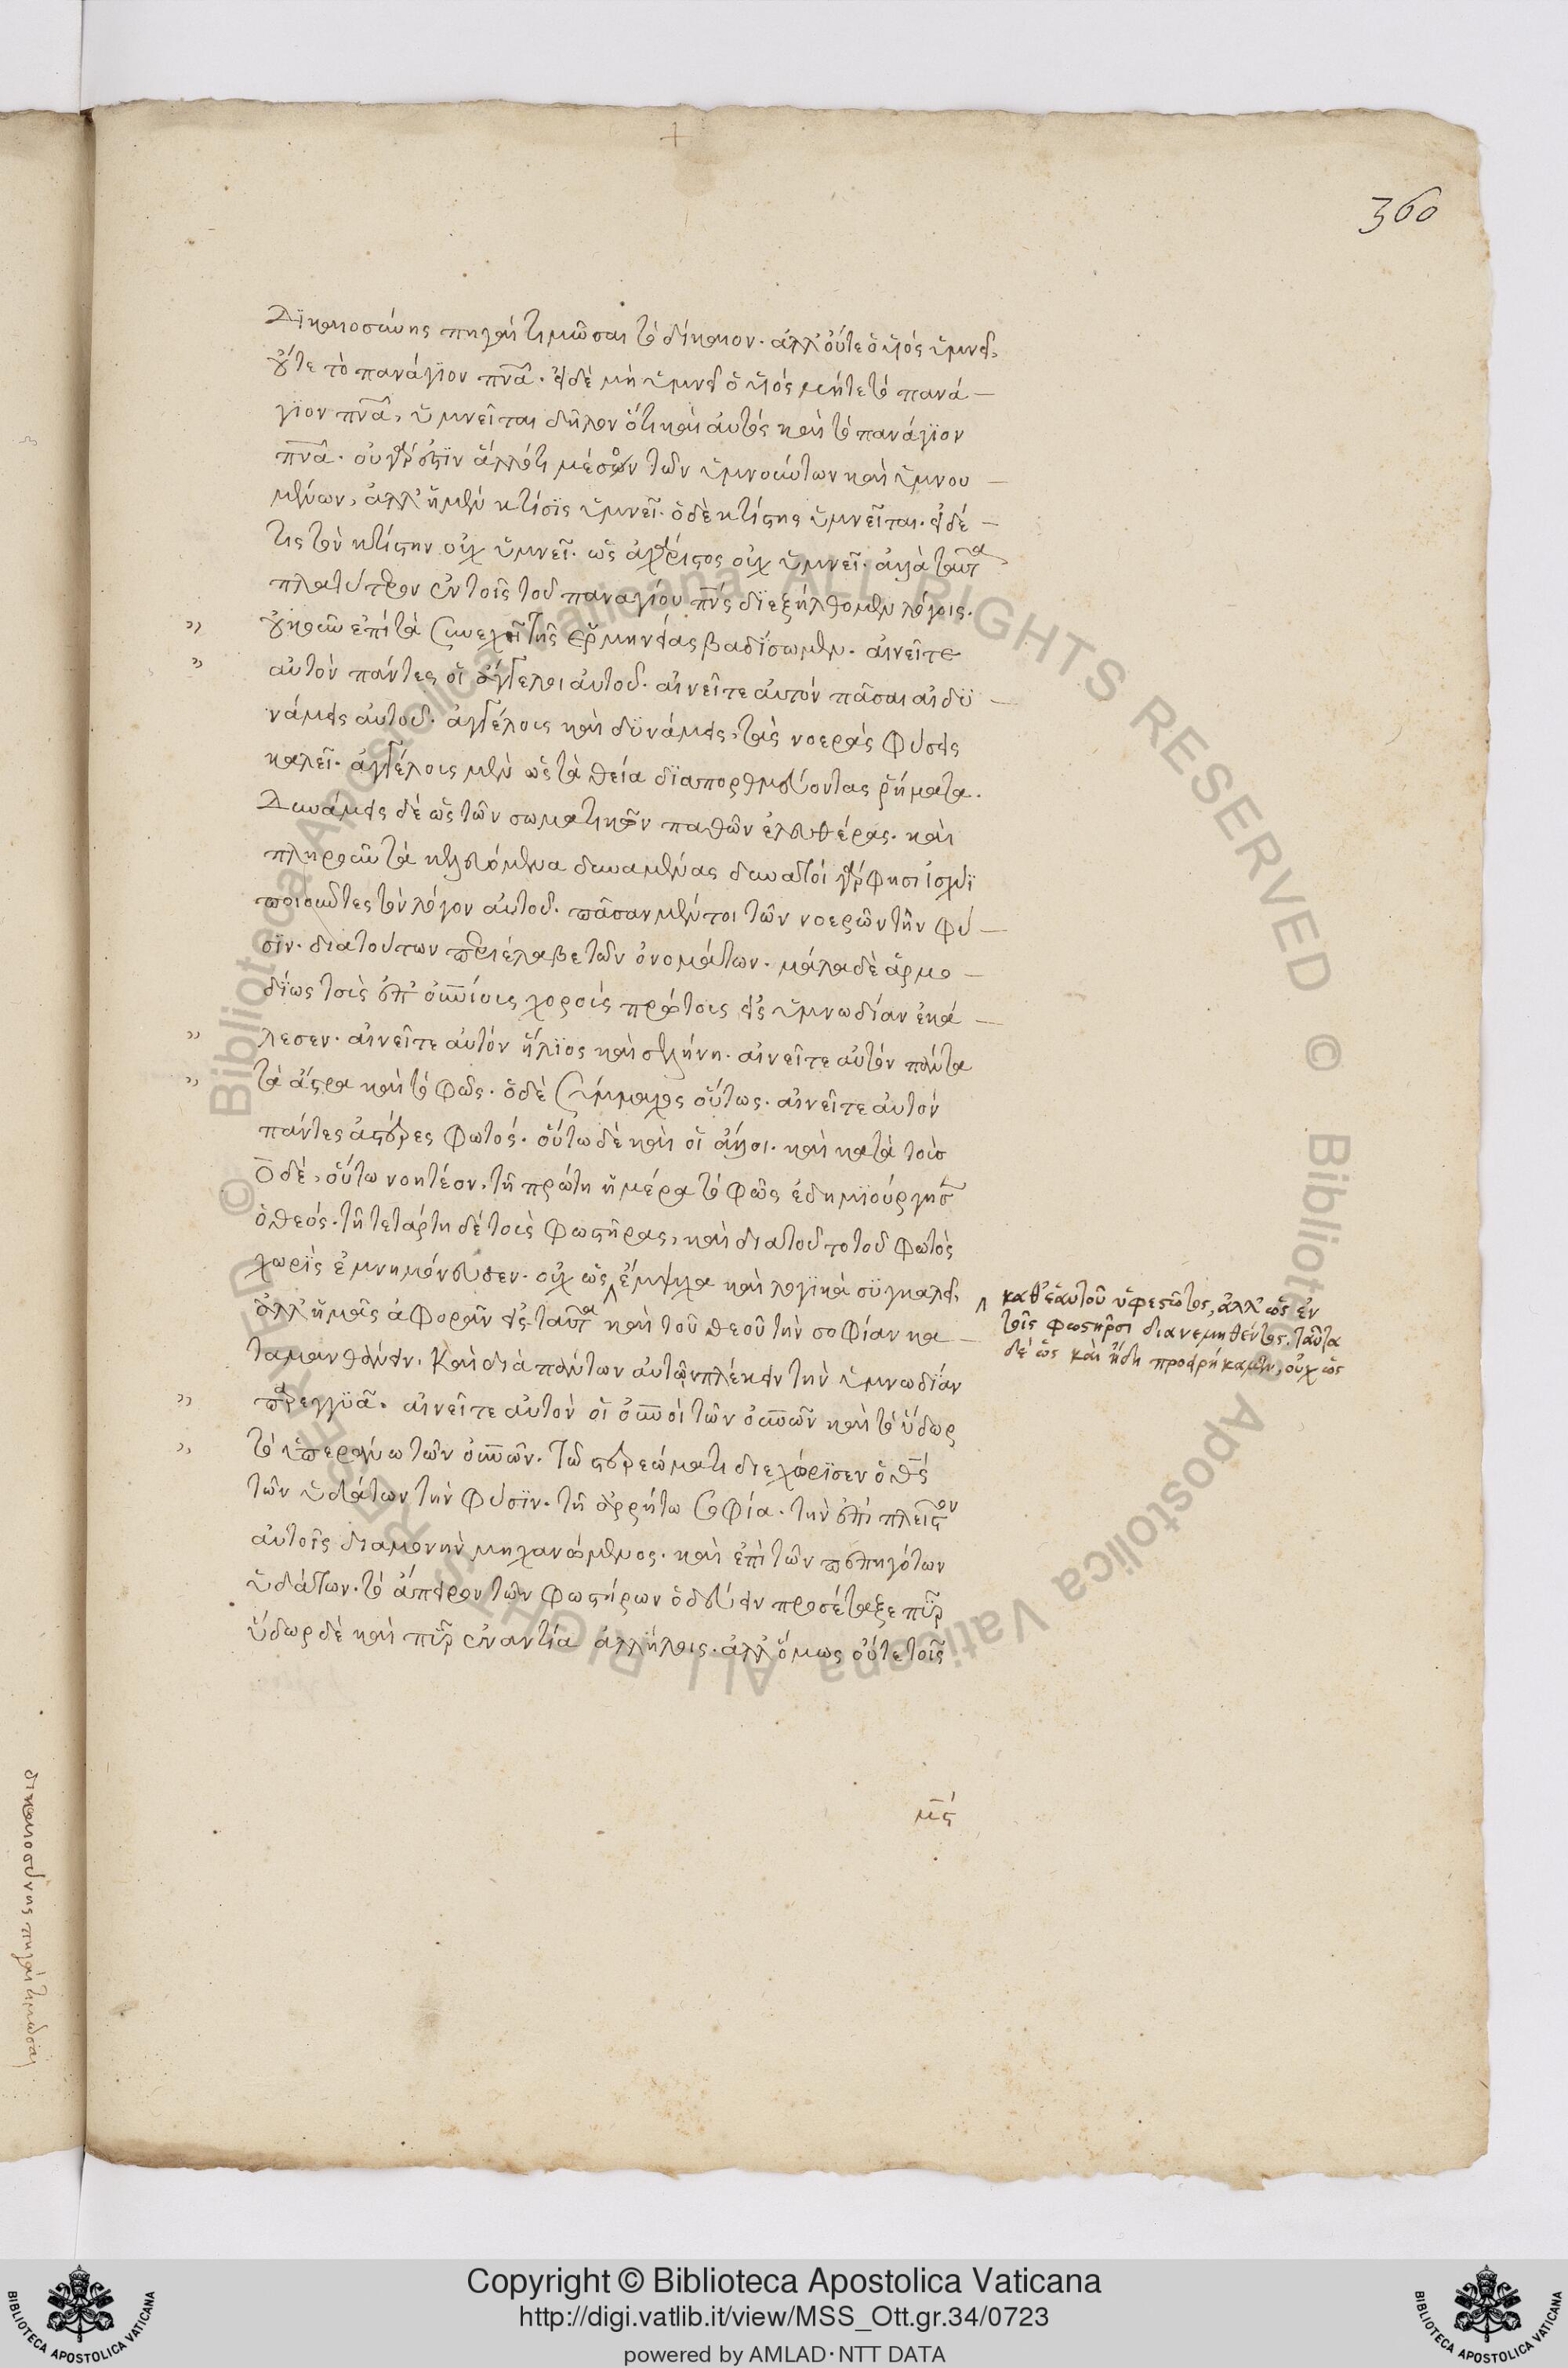 360
Δϊκαιοσύνης πηγαὶ τιμῶσαι τὸ δίκαιον. ἀλλ' οὔτε ὁ υἱός ὑμνεῖ,
οὔτε τὸ πανάγϊον πνᾶ. εἰ δὲ μὴ ὑμνεῖ ὁ υἱός μήτε τὸ πανά-
γϊον πνᾶ, ὑμνεῖται δῆλον ὅτι καὶ αὐτὸς καὶ τὸ πανάγϊον
πνᾶ. οὐ γάρ ἐστϊν ἄλλό τι μέσον τῶν ὑμνούντων καὶ ὑμνου-
μένων, ἀλλ' ἡ μὲν κτίσϊς ὑμνεῖ. ὁ δὲ κτίστης ὑμνεῖται. εἰ δέ-
τις τὸν κτίστην οὐχ ὑμνεῖ. ὡς ἀχάριστος οὐχ ὑμνεῖ. ἀλλὰ ταῦτα
πλατύτερον ἐν τοῖς τοῦ παναγίου πνς διεξήλθομεν λόγοις.
οὐκοῦν ἐπὶ τὰ συνεχῆ τῆς ἑρμηνείας βαδίσωμεν. αἰνεῖτε
αὐτὸν πάντες οἱ ἄγγελοι αὐτοῦ. αἰνεῖτε αὐτὸν πᾶσαι αἱ δϋ-
νάμεις αὐτοῦ. ἀγγέλους καὶ δϋνάμεις, τὰς νοερὰς φύσεις
καλεῖ. ἀγγέλους μὲν ὡς τὰ θεία δϊαπορθμεύοντας ῥήματα.
Δυνάμεις δὲ ὡς τῶν σωματικῶν παθῶν ἐλευθέρας. καὶ
πληροῦν τὰ κελευόμενα δυναμένας δυνατοί γάρ φησι ἰσχύϊ
ποιοῦντες τὸν λόγον αὐτοῦ. πᾶσαν μέντοι τῶν νοερῶν τὴν φύ-
σϊν. διατούτων περιέλαβε τῶν ὀνομάτων. μάλα δὲ ἁρμο-
δϊως τοὺς ἐπ' οὐνίους χοροὺς πρώτους εἰς ὑμνωδίαν ἐκά-
λεσεν. αἰνεῖτε αὐτόν ἥλϊος καὶ σελήνη. αἰνεῖτε αὐτὸν πάντα
τὰ ἄστρα καὶ τὸ φῶς. ὁ δὲ Σύμμαχος οὕτως. αἰνεῖτε αὐτόν
πάντες ἀστέρες φωτός. οὕτω δὲ καὶ οἱ ἄλλοι. καὶ κατὰ τοὺς
Ο̅ δέ, οὕτω νοητέον. τῆ πρώτη ἡμέρα τὸ φῶς ἐδημϊούργησ
ὁ θεός. τῆ τετάρτη δὲ τοὺς φωστῆρας, καὶ διατοῦτο τοῦ φωτὸς
χωρϊς ἐμνημόνευσεν. οὐχ ὡς ^ ἔμψυχα καὶ λογϊκὰ σϋγκαλεῖ,
ἀλλ' ἡμᾶς ἀφορᾶν εἰς ταῦτα καὶ τοῦ θεοῦ τὴν σοφίαν κα-
ταμανθάνειν. Καὶ διὰ πάντων αὐτῶ πλέκειν τὴν ὑμνωδϊαν
παρεγγϋᾶ. αἰνεῖτε αὐτὸν οἱ οὐνοὶ τῶν οὐνῶν καὶ τὸ ὕδωρ
τὸ ὑπεράνω τῶν οὐνῶν. Τῶ στερεώματι διεχώρϊσεν ὁ θς
τῶν ὑδάτων τὴν φύσϊν. τῆ ἀρρήτω σοφία. τὴν ἐπὶ πλεῖστον
αὐτοῖς διαμονὴν μηχανώμενος. καὶ ἐπὶ τῶν πεπηγότων
ὑδάτων. τὸ ἄπειρον τῶν φωστήρων ὁδεύειν προσέταξε πῦρ
ὕδωρ δὲ καὶ πῦρ ἐναντία ἀλλήλοις. ἀλλ' ὅμως οὔτε τοῖς
^ καθ' ἑαυτοῦ ὑφεστῶτος, ἀλλ' ὡς ἐν
τοῖς φωστῆρσι διανεμηθέντος. ταῦτα
δὲ ὡς καὶ ἤδη προειρήκαμεν, οὐχ ὡς
μς
δικαιοσύνης πηγαὶ τιμῶσαι
Copyright © Biblioteca Apostolica Vaticana
http://digi.vatlib.it/view/MSS_Ott.gr.34/0723
powered by AMLAD·NTT DATA
BIBLIOTECA APOSTOLICA VATICANA
BIBLIOTECA APOSTOLICA VATICANA
© Biblioteca Apostolica Vaticana ALL RIGHTS RESERVED © Biblioteca Apostolica Vaticana ALL RIGHTS RESERVED